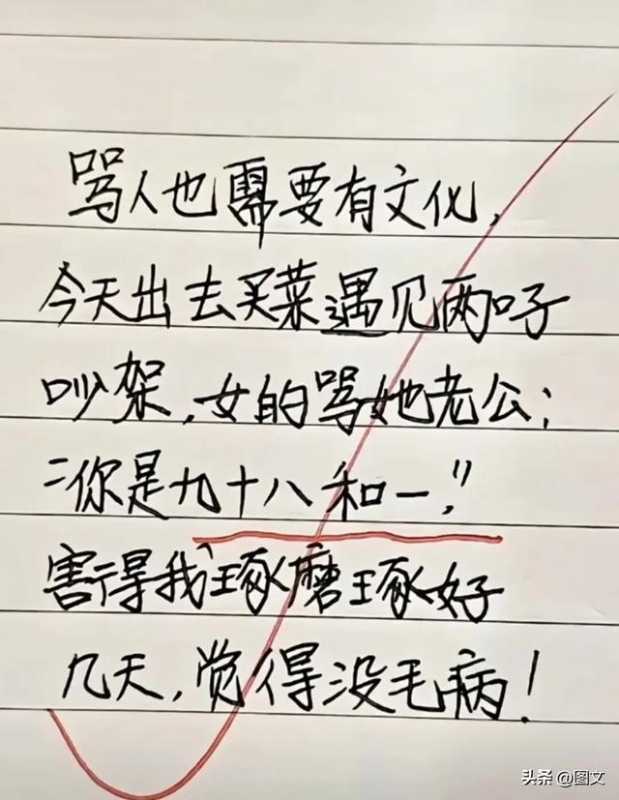 骂人也需要有文化,
今天出去买菜遇见两口子
吵架,女的骂她老公:
“你是九十八和一!”
害得我琢磨琢好
几天,觉得没毛病!
头条 @图文